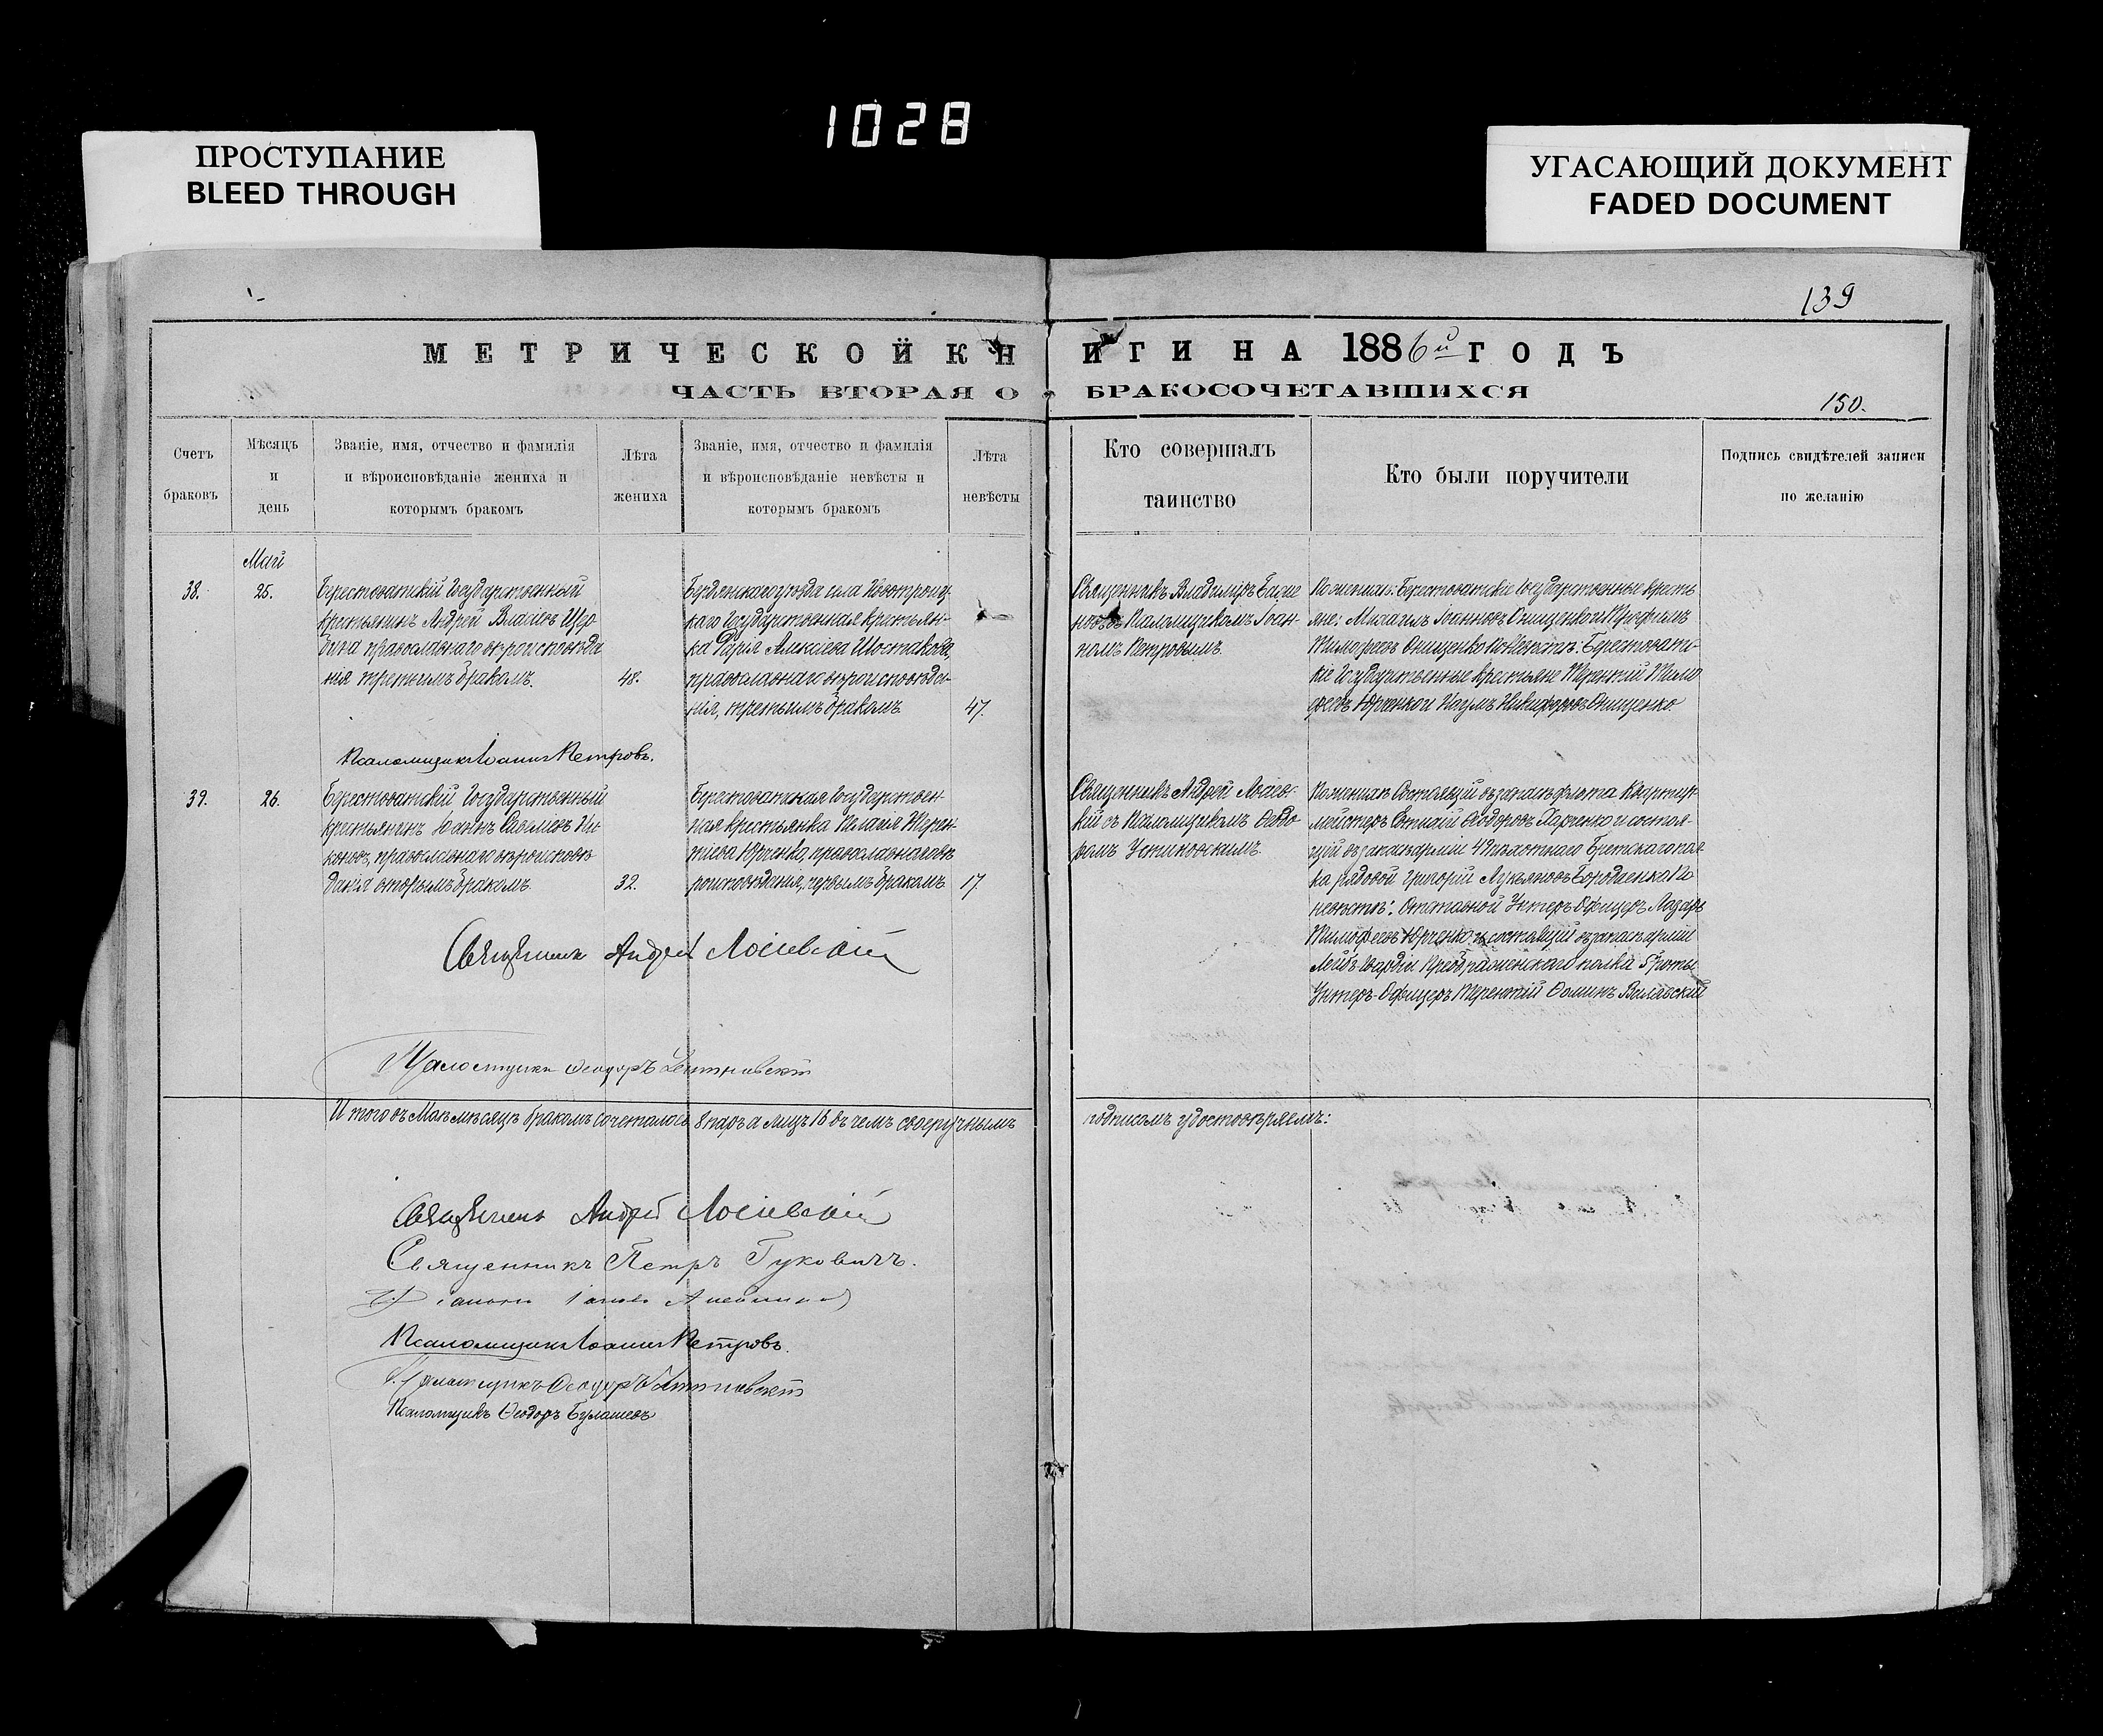 1028
ПРОСТУПАНИЕ
BLEED THROUGH
УГАСАЮЩИЙ ДОКУМЕНТ
FADED DOCUMENT
139
МЕТРИЧЕСКОЙ КНИГИ НА 1886й ГОДЪ
ЧАСТЬ ВТОРАЯ О БРАКОСОЧЕТАВШИХСЯ
150.
Счетъ
браковъ
Мѣсяцъ
и
день
Званіе, имя, отчество и фамилія
и вѣроисповѣданіе жениха и
которымъ бракомъ
Лѣта
жениха
Званіе, имя, отчество и фамилія
и вѣроисповѣданіе невѣсты и
которымъ бракомъ
Лѣта
невѣсты
Кто совершалъ
таинство
Кто были поручители
Подпись свидѣтелей записи
по желанію
Май
38.
25.
Берестоватскій Государственный
крестьянинъ Андрей Власіевъ
православнаго вѣроисповѣда
нія третьимъ бракомъ.
48.
Бердянскаго уѣзда села Новотроиц
каго Государственная крестьян-
ка Дарія Алексіева Шостакова,
православнаго вѣроисповѣда-
нія, третьимъ бракомъ
47.
Священникъ Владиміръ
съ Псаломщикомъ Іоан
номъ Петровымъ.
По женихѣ: Берестоватскіе Государственные кресть
яне: Михаилъ Іоанновъ Онищенко и
Тимофеевъ Онищенко По Невѣстѣ: Берестоватс-
кіе Государственные крестьяне Терентій Тимо
феевъ Юрченко и Наумъ Никифоровъ Онищенко.
Псаломщикъ Іоаннъ Петровъ.
39.
26.
Берестоватскій Государственный
крестьянинъ Іоаннъ Савеліевъ Ни
коновъ, православнаго вѣроисповѣ
данія вторымъ бракомъ.
32.
Берестоватская Государствен-
ная крестьянка Пелагія Терен-
тіева Юрченко, православнаго вѣ
роисповѣданія, первымъ бракомъ
17.
Священникъ Андрей Лосіевс-
кій съ Псаломщикомъ Ѳеодо
ромъ
По женихѣ Состоящій въ запасѣ флота Квартир-
мейстеръ Ѳеодоровъ Харченко и состоя-
щій въ запасѣ арміи 49 пѣхотнаго Брестскаго пол
ка рядовой Григорій Лукьяновъ Бородиенко. По
невѣстѣ: Отставной Унтеръ Офицеръ Лазарь
Тимофеевъ Юрченко и состоящій въ запасѣ арміи
Лейбъ Гвардіи Преображенскаго полка 5 роты
Унтеръ-Офицеръ Терентій Ѳоминъ
Священникъ Андрей Лосіевскій
Псаломщикъ Ѳеодоръ
Итого въ Маѣ мѣсяцѣ бракомъ сочеталось 8 паръ а лицъ 16 въ чемъ своеручнымъ
подписомъ удостовѣряемъ:
Священникъ Андрей Лосіевскій
Священникъ Петръ Гуковичъ.
Псаломщикъ Іоаннъ Петровъ.
Псаломщикъ Ѳеодоръ
Псаломщикъ Ѳеодоръ Булашевъ